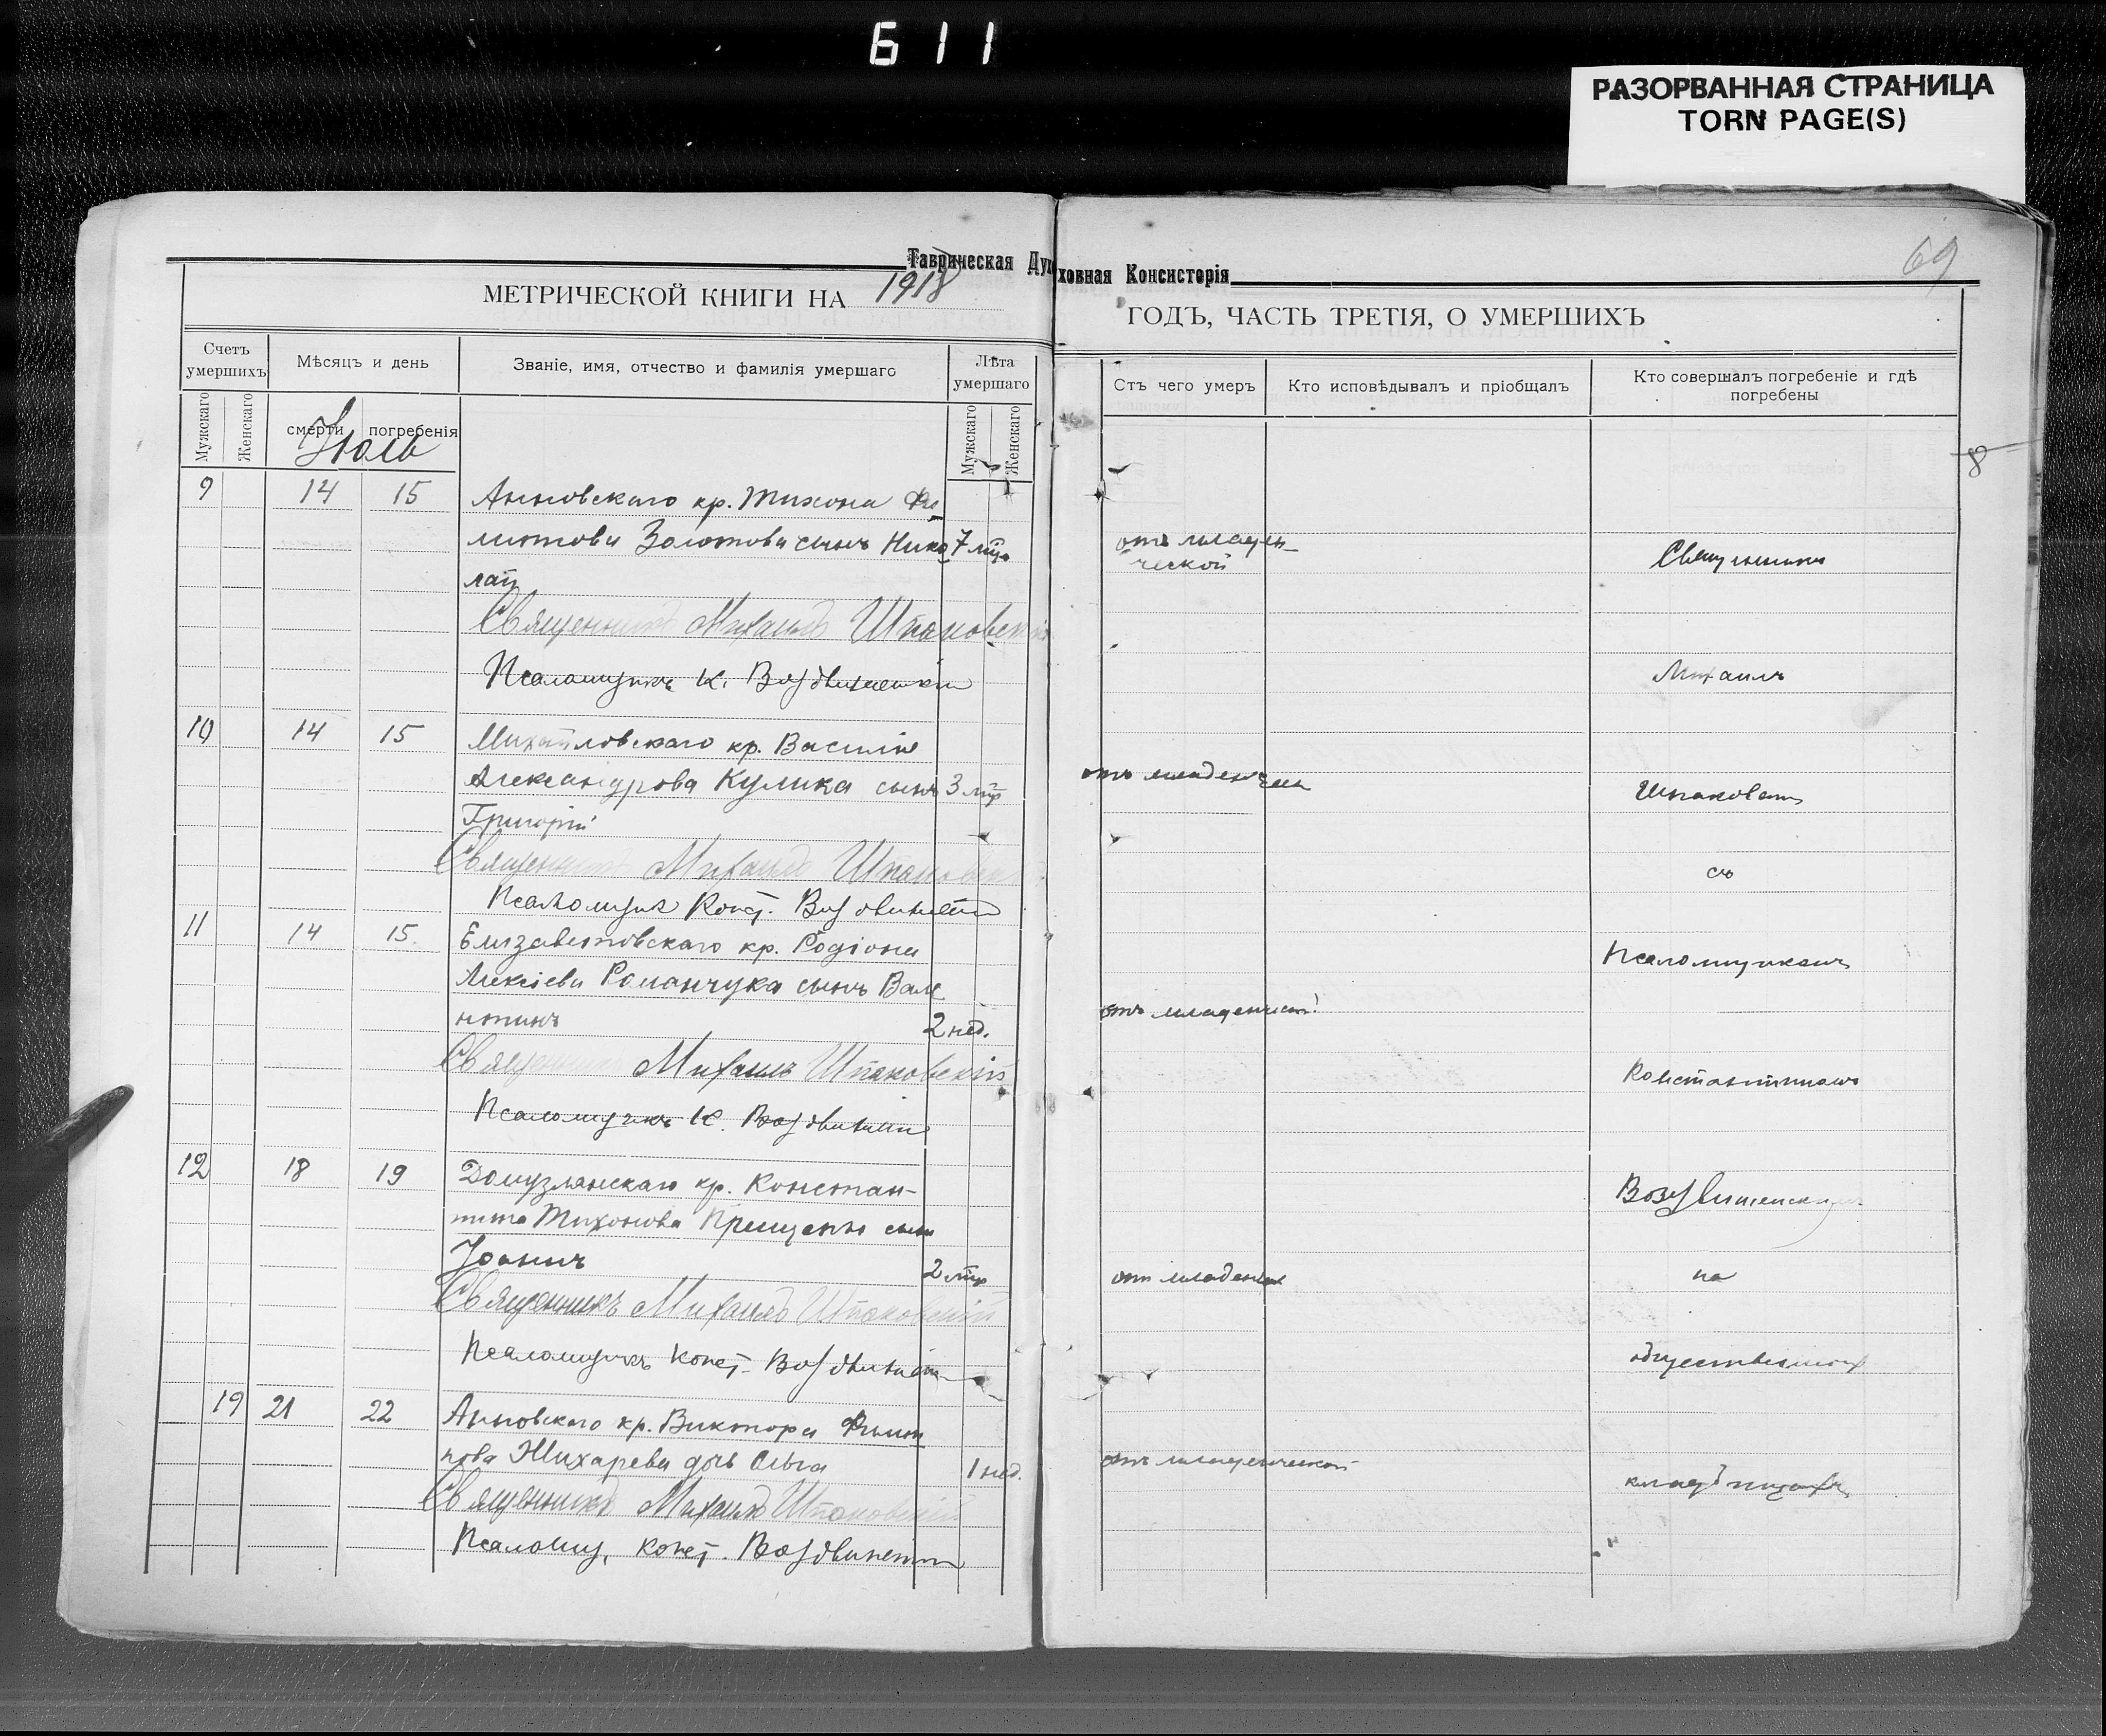 611
РАЗОРВАННАЯ СТРАНИЦА
TORN PAGE(S)
69
Таврическая Духовная Консисторія
МЕТРИЧЕСКОЙ КНИГИ НА 1918
ГОДЪ, ЧАСТЬ ТРЕТІЯ, О УМЕРШИХЪ
Счетъ умершихъ
Мѣсяцъ и день
Званіе, имя, отчество и фамилія умершаго
Лѣта умершаго
Мужскаго
Женскаго
смерти
погребенія
Мужскаго
Женскаго
Іюль
9 14 15 Анновскаго кр. Тихона Фи
липпова Золотова сынъ Нико 7 мца
лай
Священникъ Михаилъ Шпаковскій
Псаломщикъ К. Воздвиженскій
10 14 15 Михайловскаго кр. Василія
Александрова Кулика сынъ 3 мца
Григорій
Священникъ Михаилъ Шпаковскій
Псаломщикъ Конст. Воздвиженскій
11 14 15 Елизаветовскаго кр. Родіона
Алексіева Романчука сынъ Вале
нтинъ 2 нед.
Священникъ Михаилъ Шпаковскій
Псаломщикъ К. Воздвиженскій
12 18 19 Домузлянскаго кр. Констан-
тина Тихонова Прищепы сынъ
Іоаннъ 2 мца
Священникъ Михаилъ Шпаковскій
Псаломщикъ Конст. Воздвиженскій
19 21 22 Анновскаго кр. Виктора Филип
пова Жихарева дочь Ольга 1 нед.
Священникъ Михаилъ Шпаковскій
Псаломщ. Конст. Воздвиженскій
Отъ чего умеръ
Кто исповѣдывалъ и пріобщалъ
Кто совершалъ погребеніе и гдѣ
погребены
8
отъ младен-
ческой
отъ младенческой
отъ младенческой
отъ младенческой
отъ младенческой
Священникъ
Михаилъ
Шпаковскій
съ
Псаломщикомъ
Константиномъ
Воздвиженскимъ
на
общественныхъ
кладбищахъ